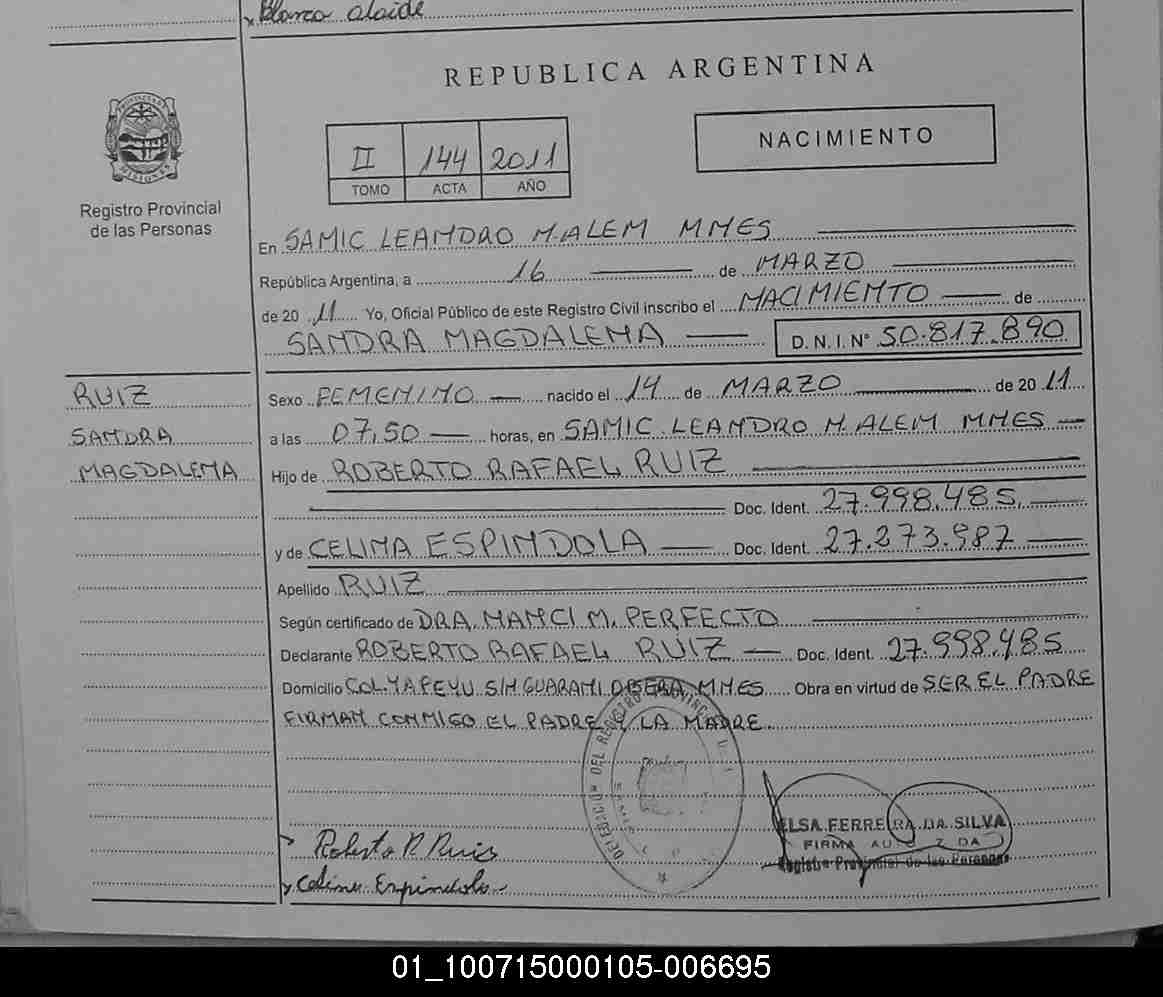 Blanca Alaide
REPUBLICA ARGENTINA
PROVINCIA DE
MISIONES
Registro Provincial
de las Personas
II 144 2011
TOMO ACTA AÑO
NACIMIENTO
En SAMIC LEANDRO N. ALEM MNES
República Argentina, a 16 de MARZO
de 20 11 Yo, Oficial Público de este Registro Civil inscribo el NACIMIENTO de
SANDRA MAGDALENA D. N. I. N° 50.817.890
RUIZ
SANDRA
MAGDALENA
Sexo FEMENINO nacido el 14 de MARZO de 20 11
a las 07,50 horas, en SAMIC LEANDRO N. ALEM MNES
Hijo de ROBERTO RAFAEL RUIZ
Doc. Ident. 27.998.485
y de CELINA ESPINDOLA Doc. Ident. 27.273.987
Apellido RUIZ
Según certificado de DRA. NANCI M. PERFECTO
Declarante ROBERTO RAFAEL RUIZ Doc. Ident. 27.998.485
Domicilio COL. YAPEYU S/N GUARANI OBERA, MNES Obra en virtud de SER EL PADRE
FIRMAN CONMIGO EL PADRE Y LA MADRE
DEL REGISTRO PROVINCIAL
Roberto R Ruis
Celina Espindola
ELSA FERREIRA DA SILVA
FIRMA
Registro Provincial de las Personas
01_100715000105-006695